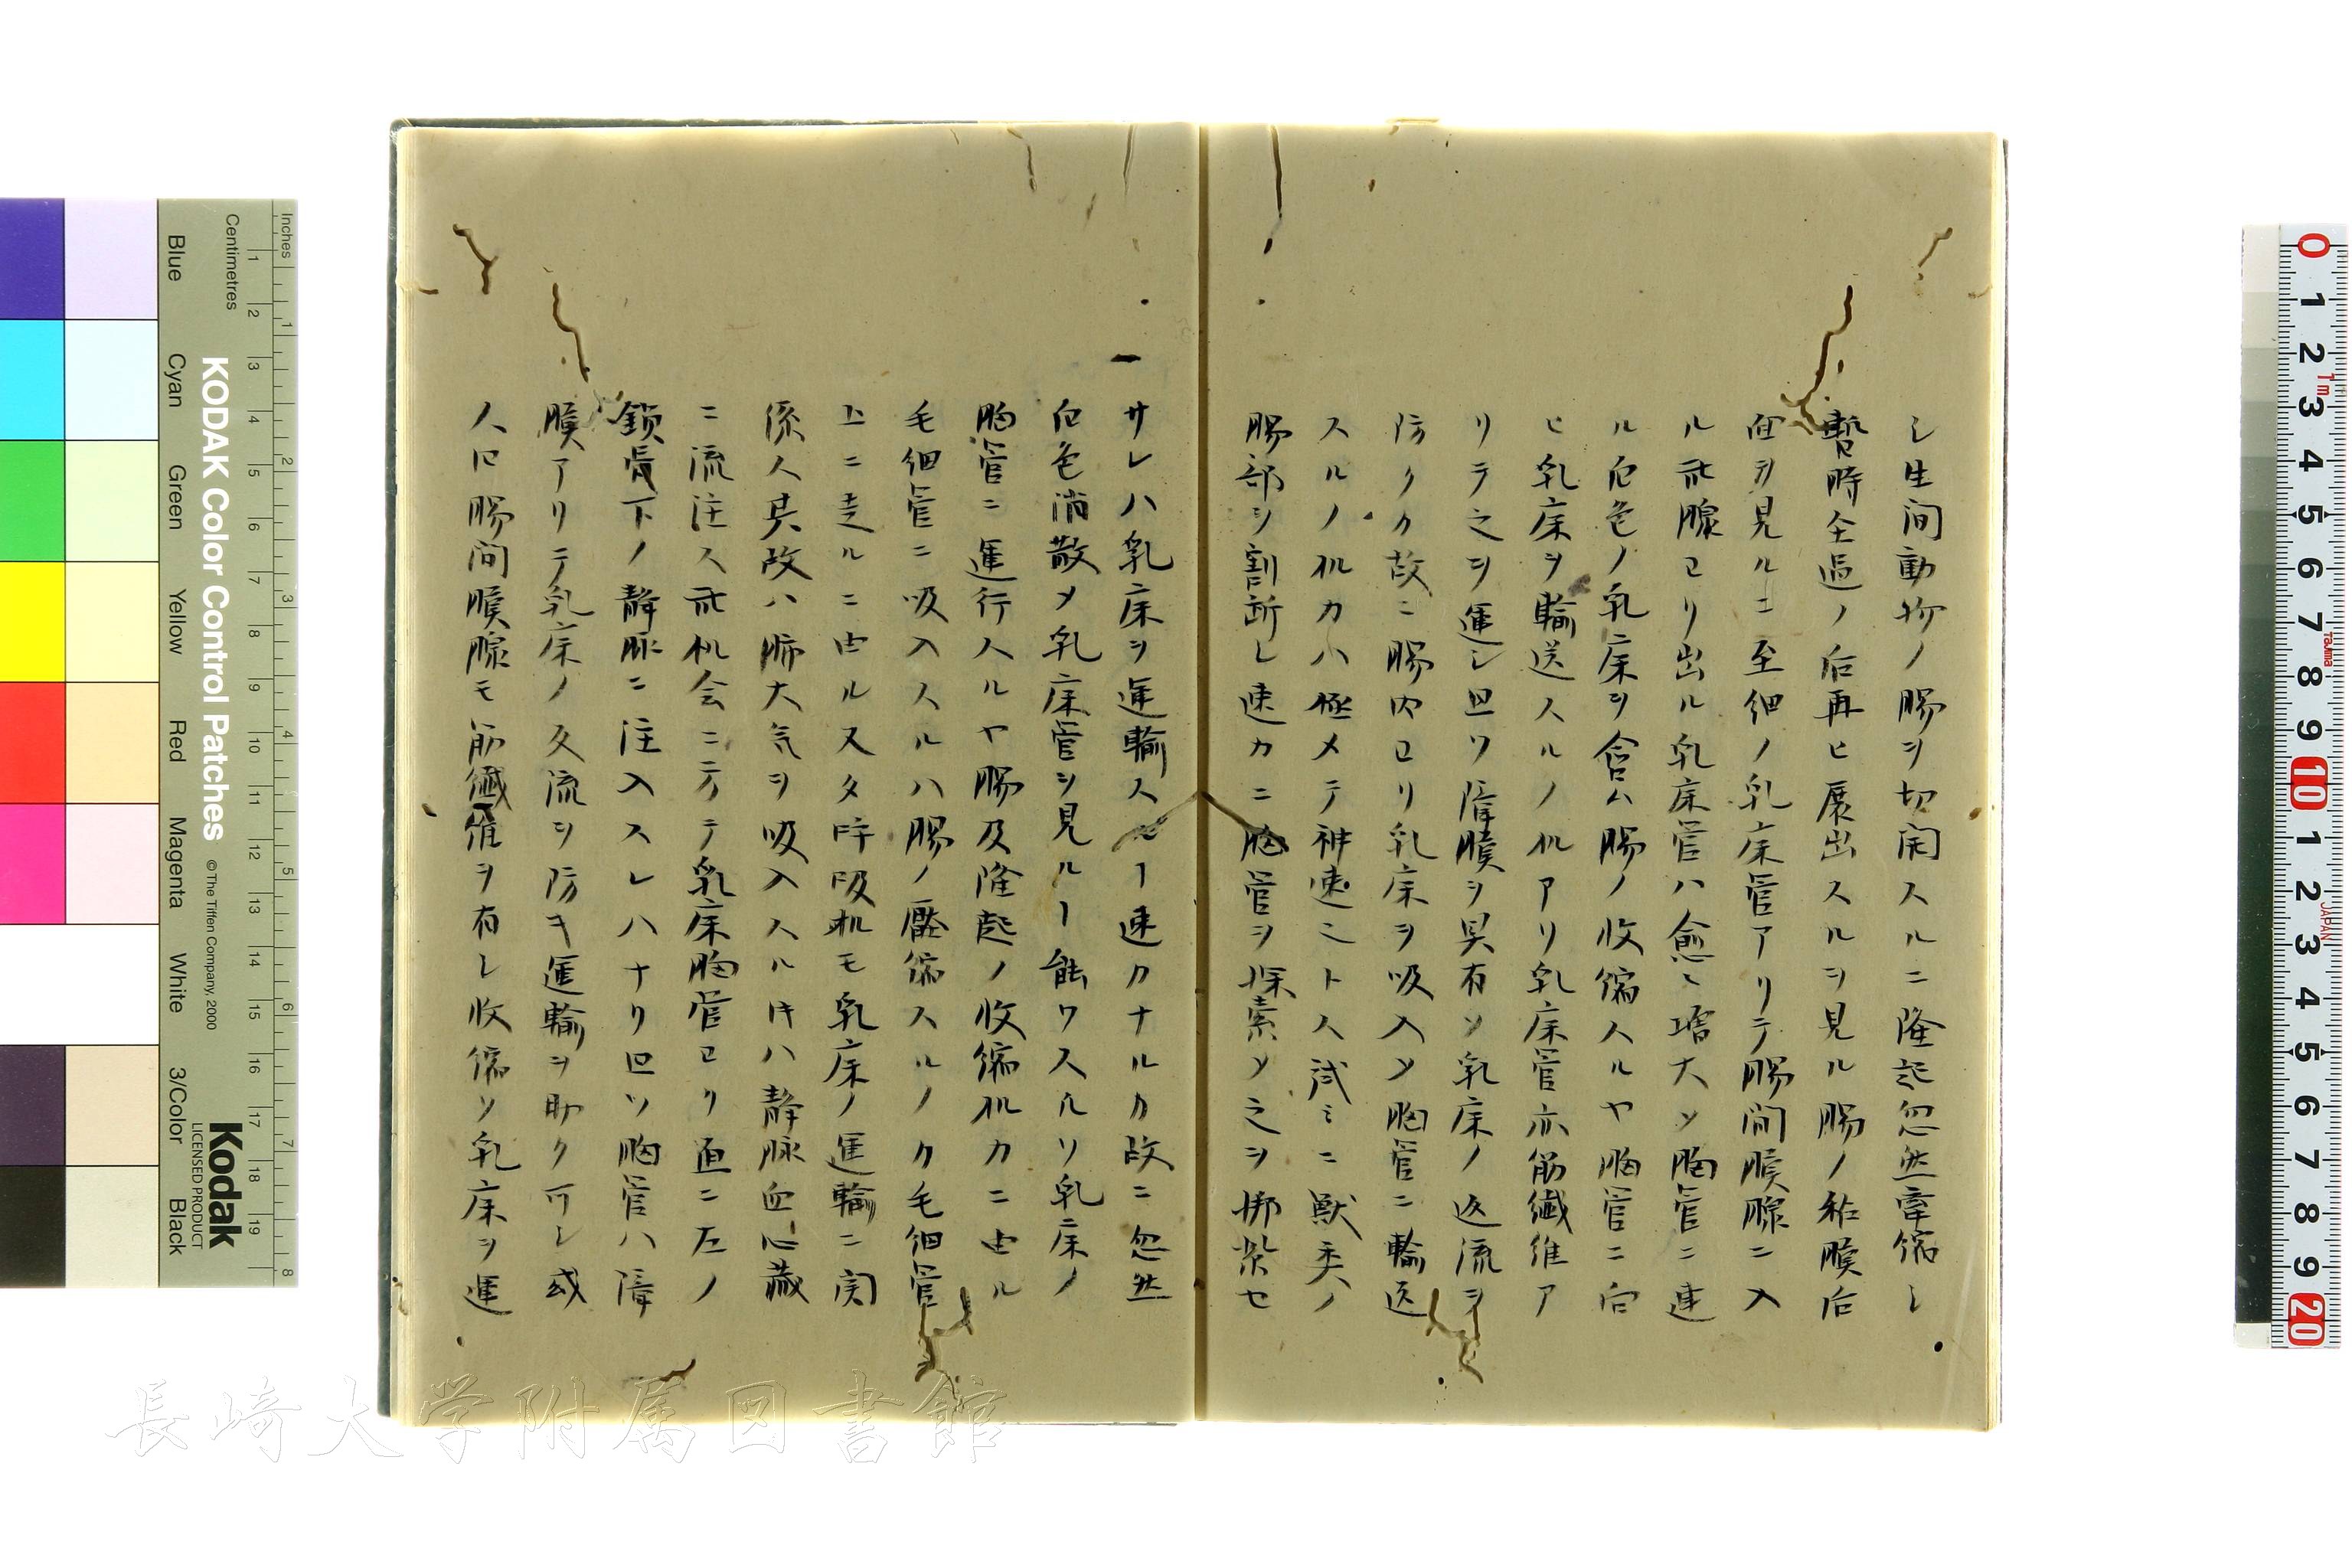 シ生間動物ノ腸ヲ切開スルニ隆起忽然牽縮シ
暫時全過ノ后再ヒ展出スルヲ見ル腸ノ粘膜后
面ヲ見ルニ至細ノ乳床管アリテ腸間膜腺ニ入
ル此腺ヨリ出ル乳床管ハ愈々増大シ胸管ニ連
ル白色ノ乳床ヲ含ム腸ノ收縮スルヤ胸管ニ向
ヒ乳床ヲ輸送スルノ机アリ乳床管亦筋纎維ア
リテ之ヲ運シ且ツ障膜ヲ具有ソ乳床ノ返流ヲ
防クカ故ニ腸内ヨリ乳床ヲ吸入メ胸管ニ輸送
スルノ机力ハ極メテ神速ニト人試ミニ獣类ノ
腸部ヲ割断シ速カニ胸管ヲ探索メ之ヲ挷紮セ
一
サレハ乳床ヲ運輸スルヿ速カナルカ故ニ忽然
白色消散メ乳床管ヲ見ルヿ能ワスルソ乳床ノ
胸管ニ運行スルヤ腸及隆起ノ收縮机力ニ由ル
毛細管ニ吸入スルハ腸ノ壓縮スルノク毛細管
上ニ走ルニ由ル又タ呼吸机モ乳床ノ運輸ニ関
係ス其故ハ肺大気ヲ吸入スルキハ静脉血心藏
ニ流注ス此机会ニ方テ乳床胸管ヨリ直ニ左ノ
鎖骨下ノ静脈ニ注入スレハナリ但ソ胸管ハ障
膜アリテ乳床ノ反流ヲ防キ運輸ヲ助ク可シ或
人曰腸間膜腺モ筋纎維ヲ有シ收縮ソ乳床ヲ運
KODAK Color Control Patches
© The Tiffen Company, 2000
Kodak
LICENSED PRODUCT
Inches
Centimetres
Blue
Cyan
Green
Yellow
Red
Magenta
White
3/Color
Black
JAPAN
長崎大学附属図書館